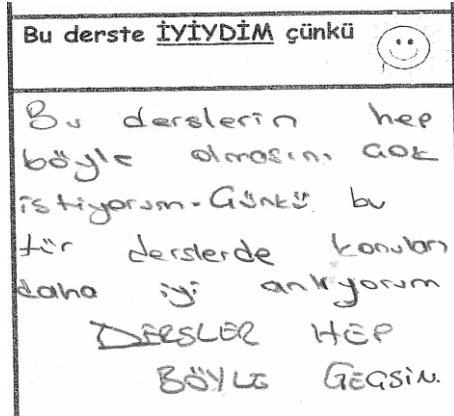 Bu derste İYİYDİM çünkü
Bu derslerin hep
böyle olmasını çok
istiyorum. Çünkü bu
tür derslerde konuları
daha iyi anlıyorum
DERSLER HEP
BÖYLE GEÇSİN.